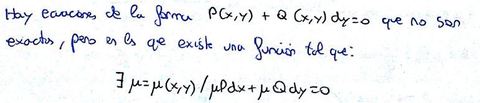 Hay ecuaciones de la forma P(x,y) + Q(x,y)dy=0 que no son
exactas, pero en las que existe una función tal que:
∃ μ=μ(x,y) / μPdx+μQdy=0